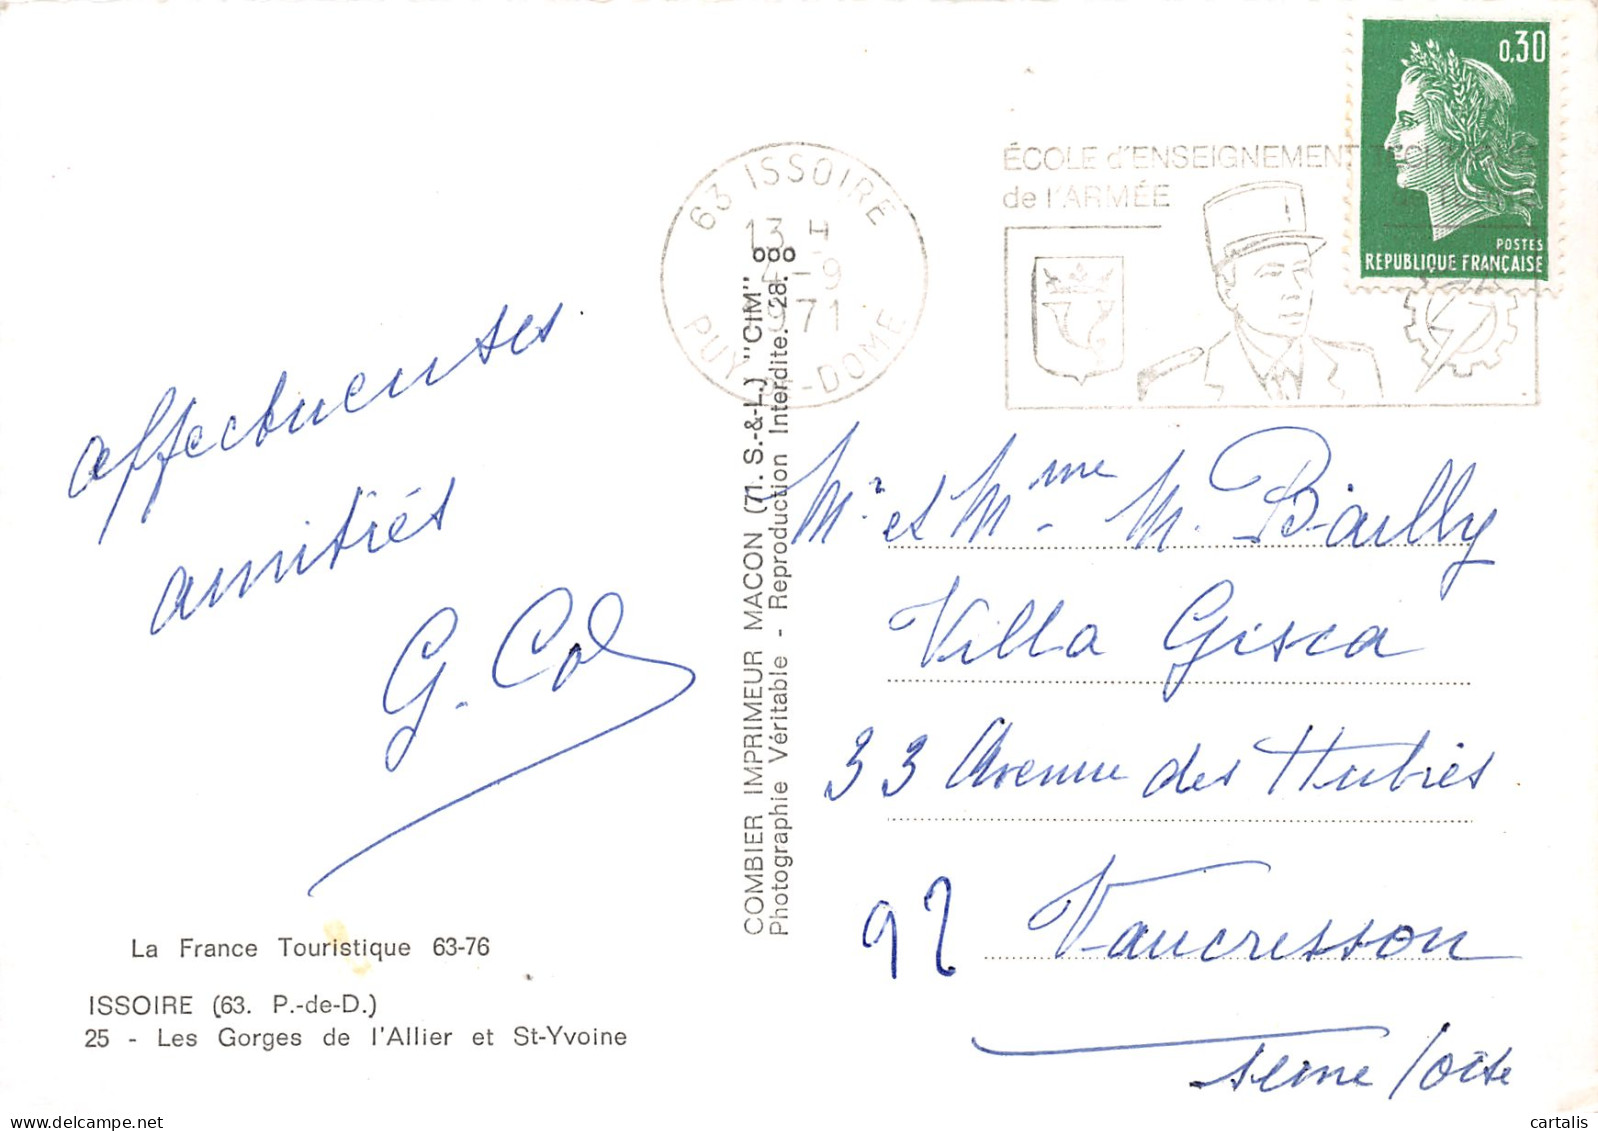 0,30
POSTES
RÉPUBLIQUE FRANÇAISE
ÉCOLE d'ENSEIGNEMENT
de l'ARMÉE
63 ISSOIRE
13 H
4-9
1971
PUY-DE-DOME
affectueuses
amitiés
G. Col
COMBIER IMPRIMEUR MACON (71. S.-&-L.) "CIM"
Photographie Véritable - Reproduction Interdite. 28.
Mr et Mme M. Bailly
Villa Gisca
33 Avenue des Hubiès
92 Vaucresson
Seine/Oise
La France Touristique 63-76
ISSOIRE (63. P.-de-D.)
25 - Les Gorges de l'Allier et St-Yvoine
cartalis